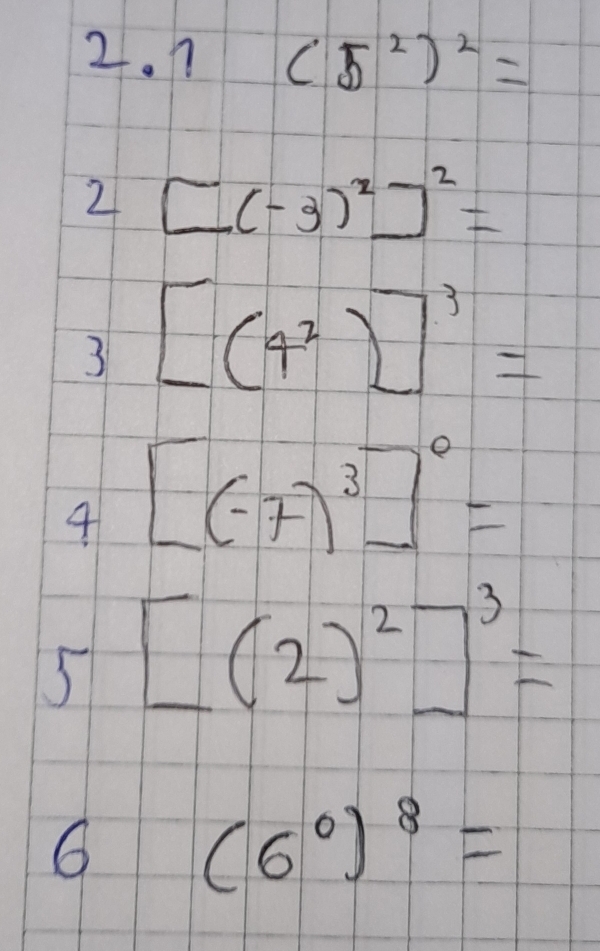 2.1 (5²)² =
2 [(-3)²]² =
3 [(4²)]³ =
4 [(-7)³]⁰ =
5 [(2)²]³ =
6 (6⁰)⁸ =